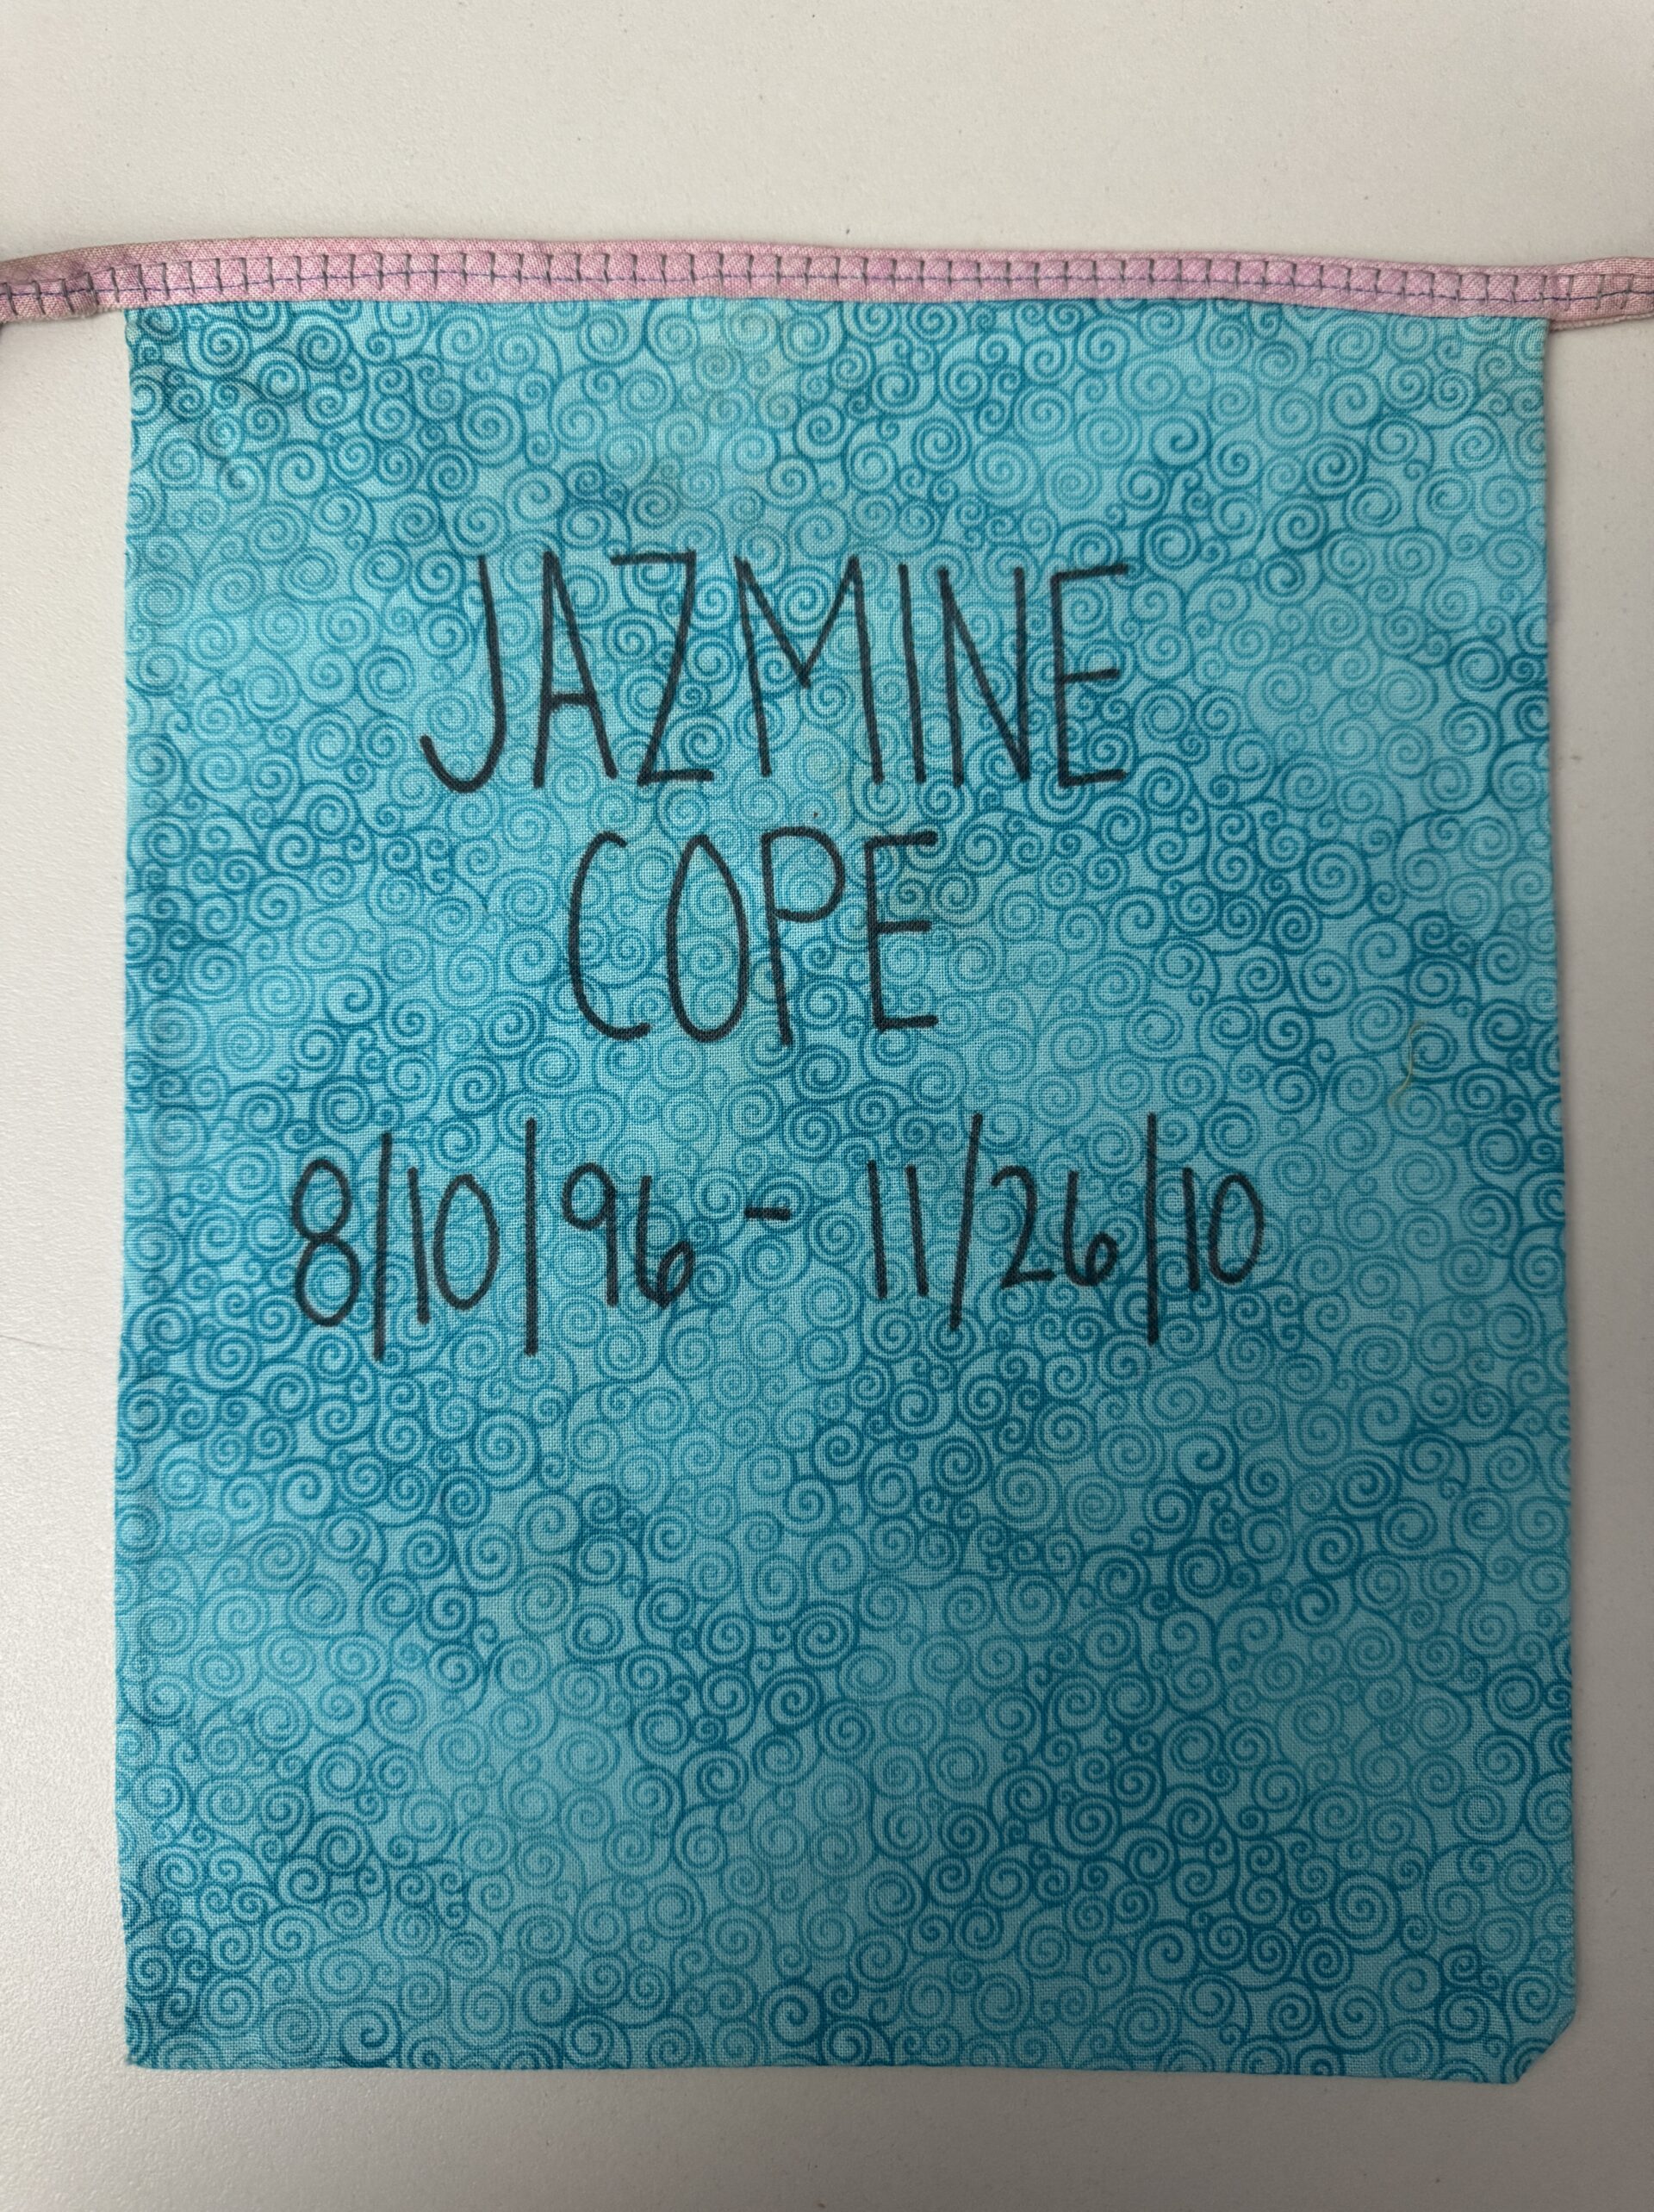 JAZMINE
COPE
8/10/96 - 11/26/10